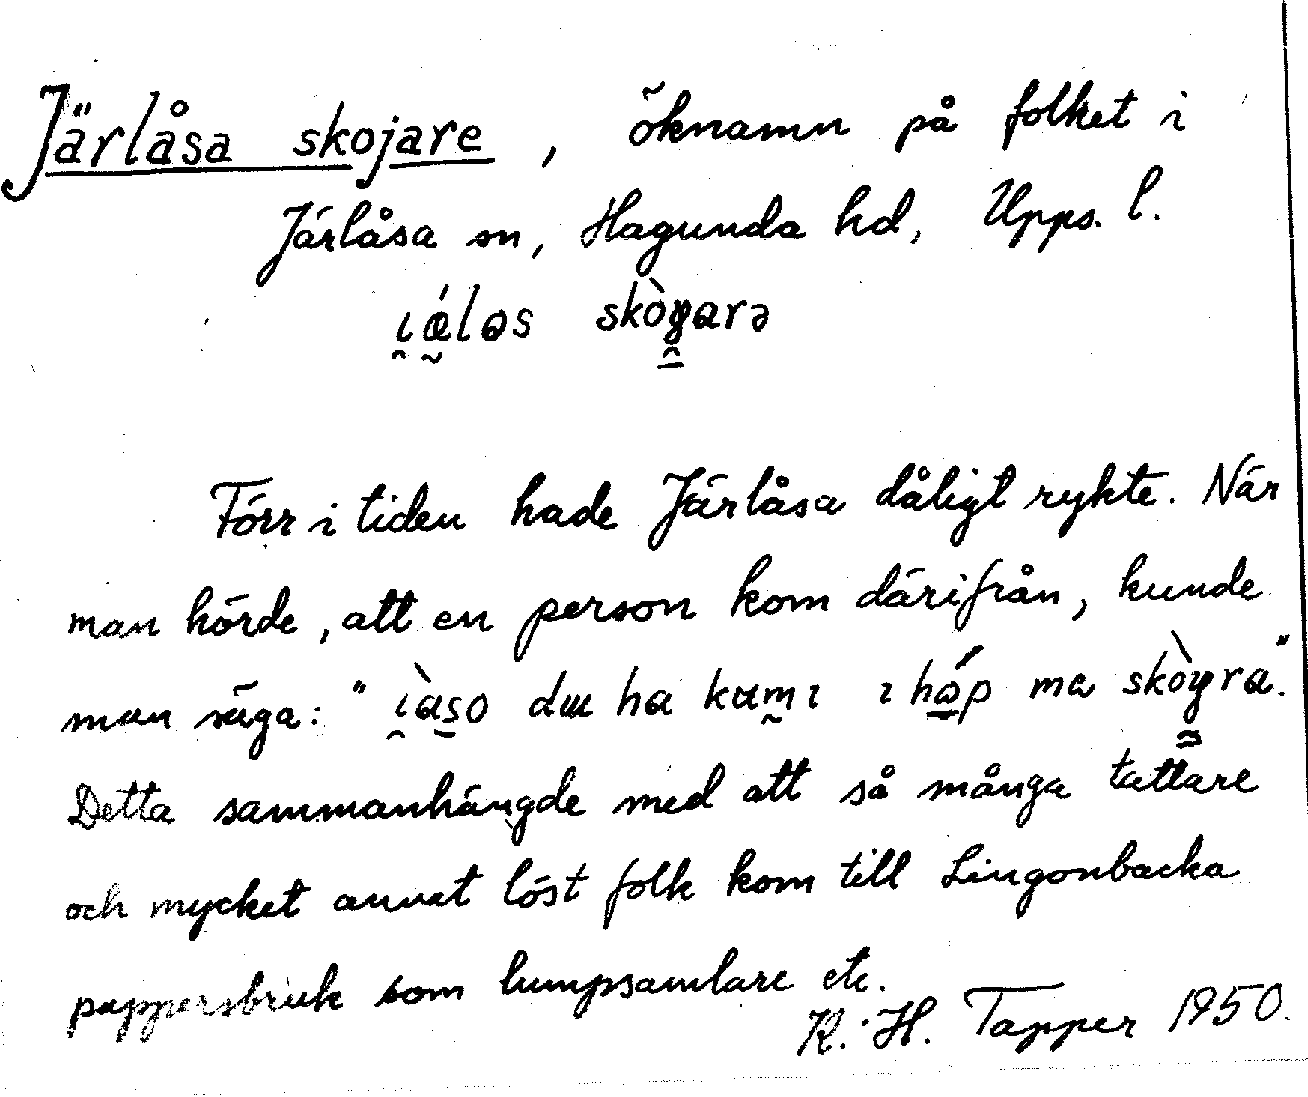 Järlåsa skojare, öknamn på folket i
Järlåsa sn, Hagunda hd, Upps. l.
ı̯ǽ̰ləs skòi̯arə
Förr i tiden hade Järlåsa dåligt rykte. När
man hörde, att en person kom därifrån, kunde
man säga: "ı̯àso du ha kum̰ı ı hə́p ma skòi̯ra".
Detta sammanhängde med att så många tattare
och mycket annat löst folk kom till Lingonbacka
pappersbruk som lumpsamlare etc.
R. H. Tapper 1950.